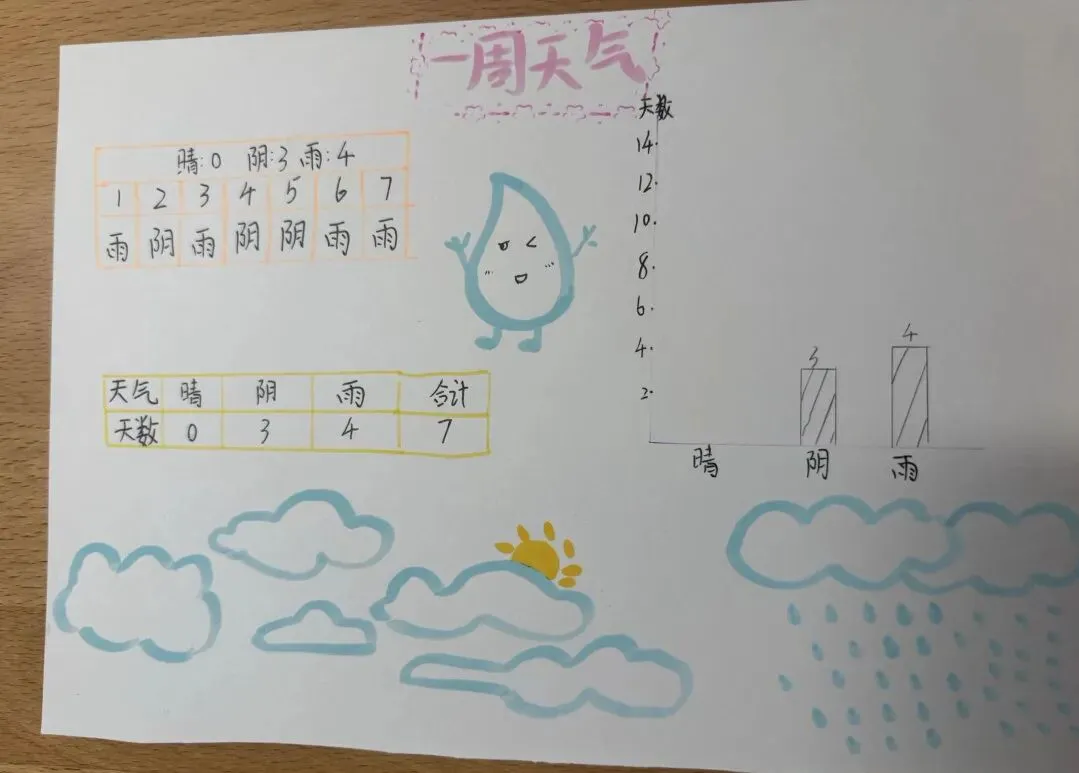 一周天气
晴:0 阴:3 雨:4
1 2 3 4 5 6 7
雨 阴 雨 阴 阴 雨 雨
天气 晴 阴 雨 合计
天数 0 3 4 7
天数
14
12
10
8
6
4
2
3 4
晴 阴 雨